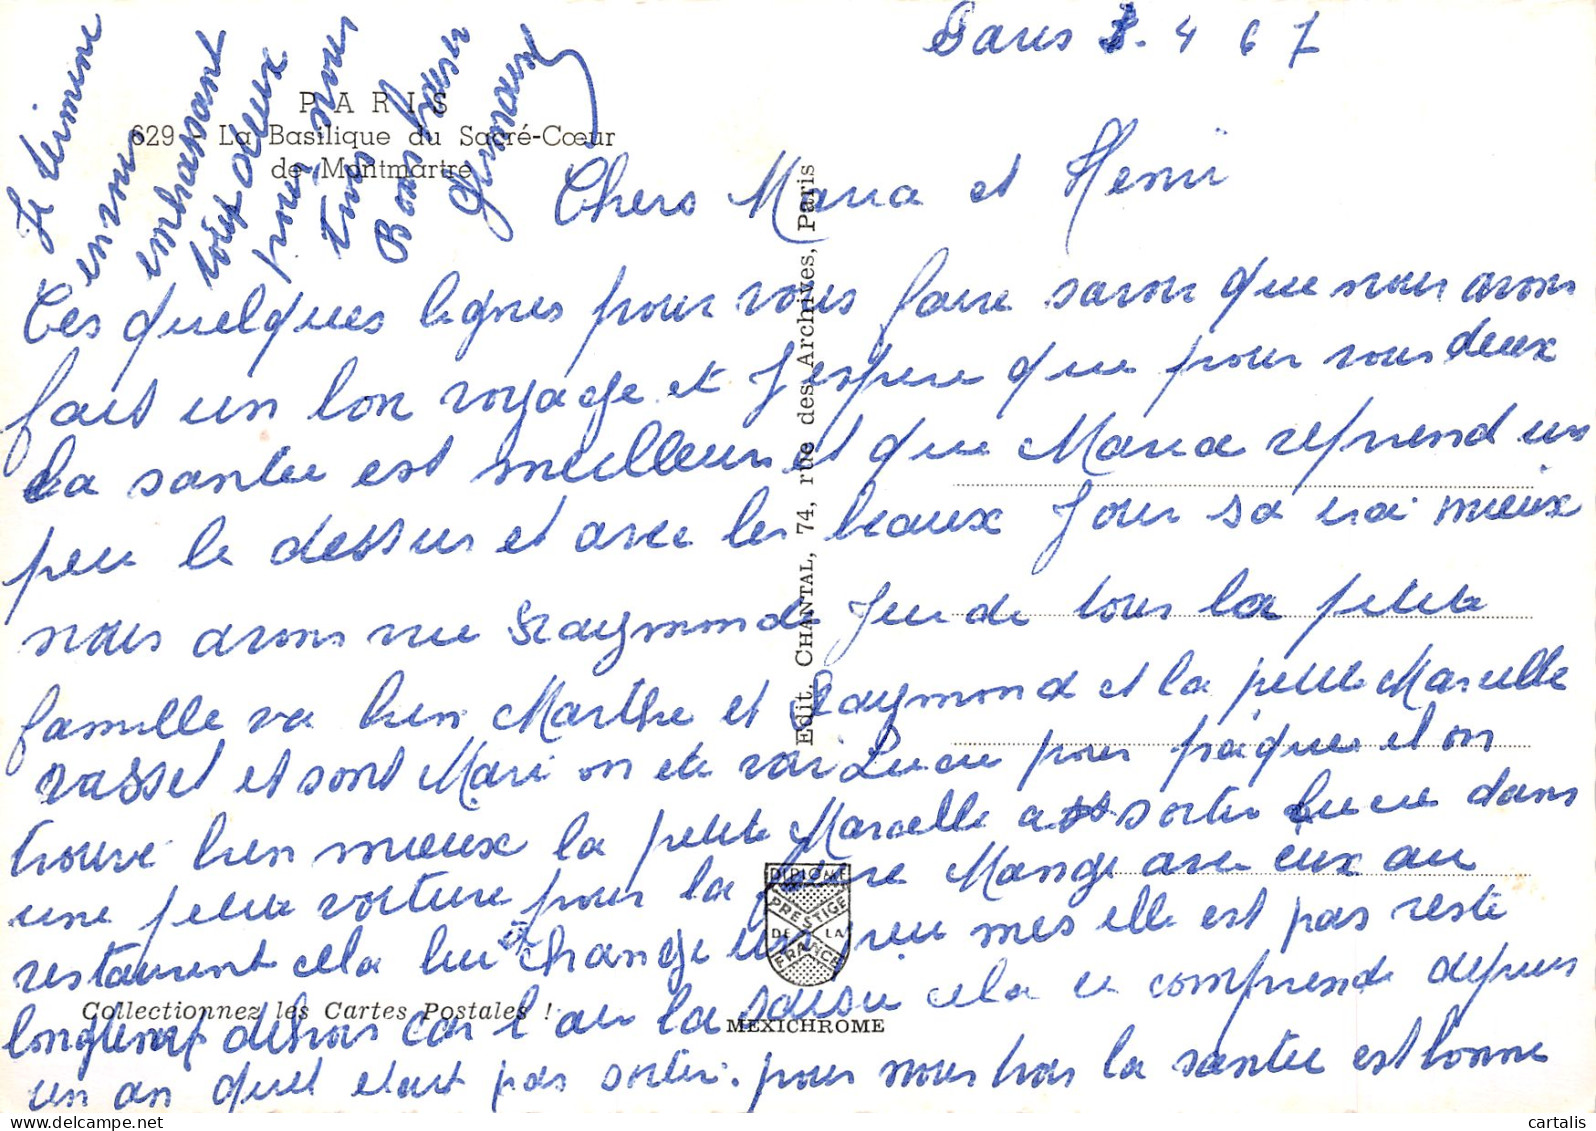 Paris 3. 4 67
PARIS
629 - La Basilique du Sacré-Cœur
de Montmartre
Chers Maria et Henri
Ces quelques lignes pour vous faire savoir que nous avons
fait un bon voyage et j'espere que pour vous deux
la santee est meilleur et que Maria reprend un
peu le dessus et avec les beaux jour sa irai mieux
nous avons vue Raymonde jeude tous la petite
famille va bien Marthe et Raymond et la petite Marcelle
et sont Mari on ete voir Lucie pour pâques et on
trouve bien mieux la petite Marcelle a sortie Lucie dans
une petite voiture pour la faire Mange avec eux au
restaurent cela lui change un peu mes elle est pas reste
longtemp dehors car l'air la saisie cela ce comprend depuis
un an quel etait pas sortie. pour nous trois la santee est bonne
Je termine
en vous
embrassant
tout deux
pour nous
trois
Bons baiser
Edit. CHANTAL, 74, rue des Archives, Paris
DIPLOME
PRESTIGE
DE LA
FRANCE
Collectionnez les Cartes Postales !
MEXICHROME
cartalis